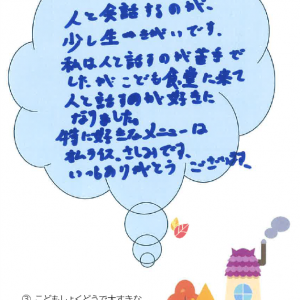 人と会話するのが、
少し生きがいです。
私は人と話すのが苦手で
したがこども食堂に来て
人と話すのが好きに
なりました。
特に好きなメニューは
ライス、さしみです。
いつもありがとう ございます。
③ こどもしょくどうで大すきな